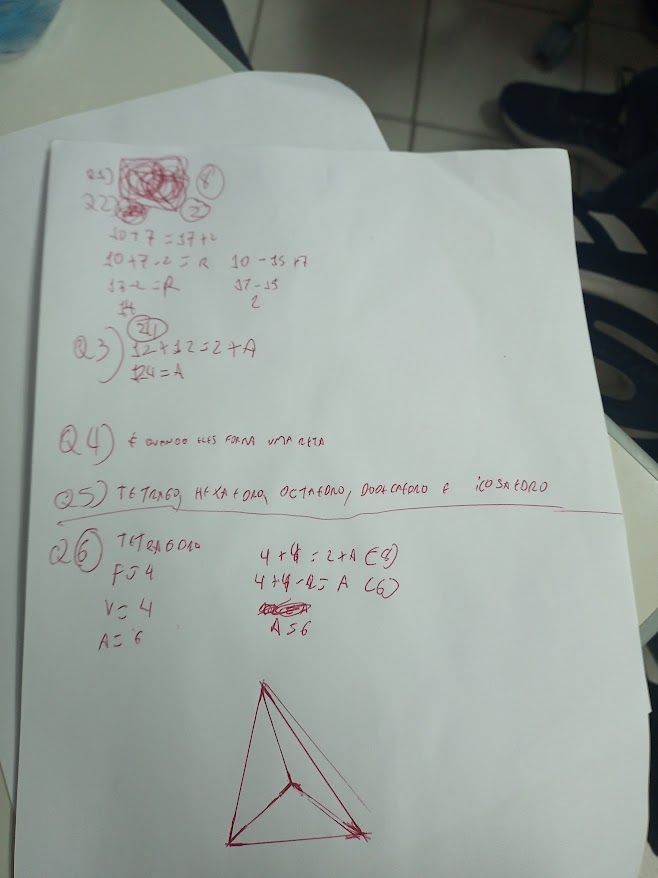 Q1) 8
Q2) 2
10+7=17+2
10+7-2=R 10-15+7
17-2=R 17-15
2
Q3) 24
12+12=2+A
24=A
Q4) É QUANDO ELES FORMA UMA RETA
Q5) HEXAEDRO, OCTAEDRO, DODECAEDRO E ICOSAEDRO
Q6) TETRAEDRO
F=4
V=4
A=6
4+4=2+A (8)
4+4-2=A (6)
A=6